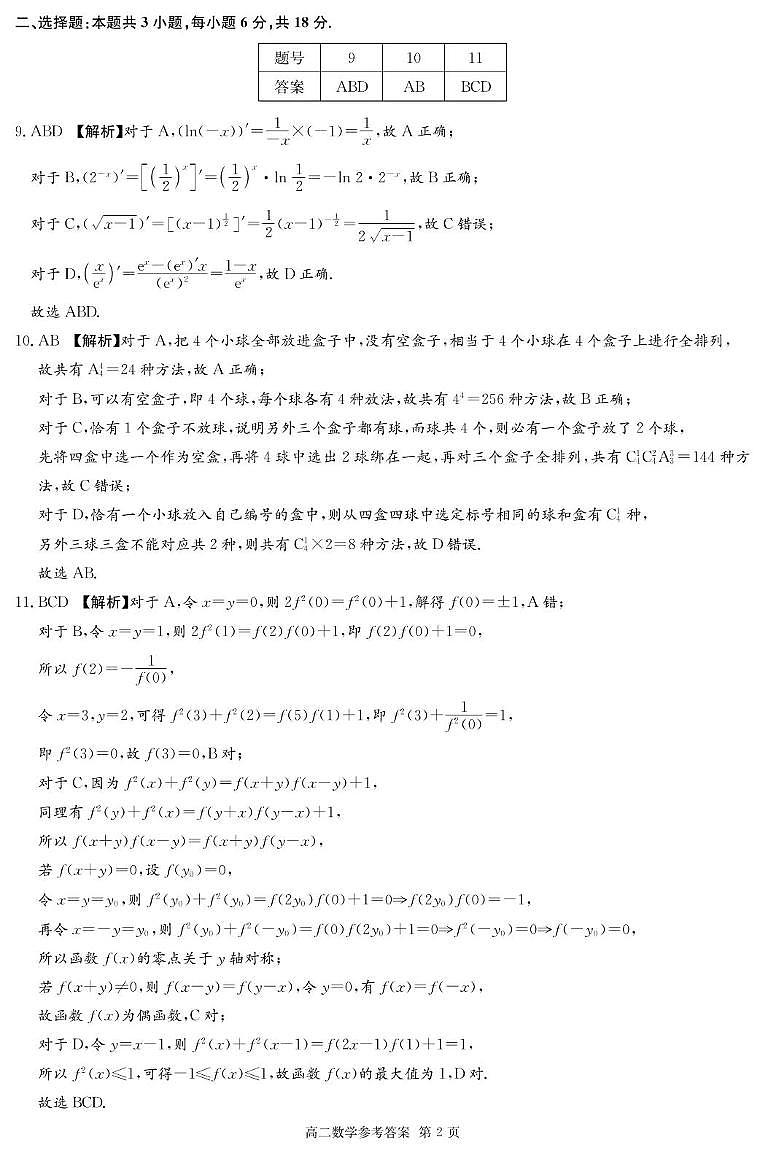 二、选择题:本题共 3 小题,每小题 6 分,共 18 分.
题号 9 10 11
答案 ABD AB BCD
9. ABD 【解析】对于 A,(ln(−x))′=1/(−x)×(−1)=1/x,故 A 正确;
对于 B,(2⁻ˣ)′=[(1/2)ˣ]′=(1/2)ˣ·ln 1/2=−ln 2·2⁻ˣ,故 B 正确;
对于 C,(√(x−1))′=[(x−1)^(1/2)]′=1/2(x−1)^(−1/2)=1/(2√(x−1)),故 C 错误;
对于 D,(x/eˣ)′=(eˣ−(eˣ)′x)/(eˣ)²=(1−x)/eˣ,故 D 正确.
故选 ABD.
10. AB 【解析】对于 A,把 4 个小球全部放进盒子中,没有空盒子,相当于 4 个小球在 4 个盒子上进行全排列,
故共有 A₄⁴=24 种方法,故 A 正确;
对于 B,可以有空盒子,即 4 个球,每个球各有 4 种放法,故共有 4⁴=256 种方法,故 B 正确;
对于 C,恰有 1 个盒子不放球,说明另外三个盒子都有球,而球共 4 个,则必有一个盒子放了 2 个球,
先将四盒中选一个作为空盒,再将 4 球中选出 2 球绑在一起,再对三个盒子全排列,共有 C₄¹C₄²A₃³=144 种方
法,故 C 错误;
对于 D,恰有一个小球放入自己编号的盒中,则从四盒四球中选定标号相同的球和盒有 C₄¹ 种,
另外三球三盒不能对应共 2 种,则共有 C₄¹×2=8 种方法,故 D 错误.
故选 AB.
11. BCD 【解析】对于 A,令 x=y=0,则 2f²(0)=f²(0)+1,解得 f(0)=±1,A 错;
对于 B,令 x=y=1,则 2f²(1)=f(2)f(0)+1,即 f(2)f(0)+1=0,
所以 f(2)=−1/f(0),
令 x=3,y=2,可得 f²(3)+f²(2)=f(5)f(1)+1,即 f²(3)+1/f²(0)=1,
即 f²(3)=0,故 f(3)=0,B 对;
对于 C,因为 f²(x)+f²(y)=f(x+y)f(x−y)+1,
同理有 f²(y)+f²(x)=f(y+x)f(y−x)+1,
所以 f(x+y)f(x−y)=f(x+y)f(y−x),
若 f(x+y)=0,设 f(y₀)=0,
令 x=y=y₀,则 f²(y₀)+f²(y₀)=f(2y₀)f(0)+1=0⇒f(2y₀)f(0)=−1,
再令 x=−y=y₀,则 f²(y₀)+f²(−y₀)=f(0)f(2y₀)+1=0⇒f²(−y₀)=0⇒f(−y₀)=0,
所以函数 f(x)的零点关于 y 轴对称;
若 f(x+y)≠0,则 f(x−y)=f(y−x),令 y=0,有 f(x)=f(−x),
故函数 f(x)为偶函数,C 对;
对于 D,令 y=x−1,则 f²(x)+f²(x−1)=f(2x−1)f(1)+1=1,
所以 f²(x)≤1,可得−1≤f(x)≤1,故函数 f(x)的最大值为 1,D 对.
故选 BCD.
高二数学参考答案 第 2 页